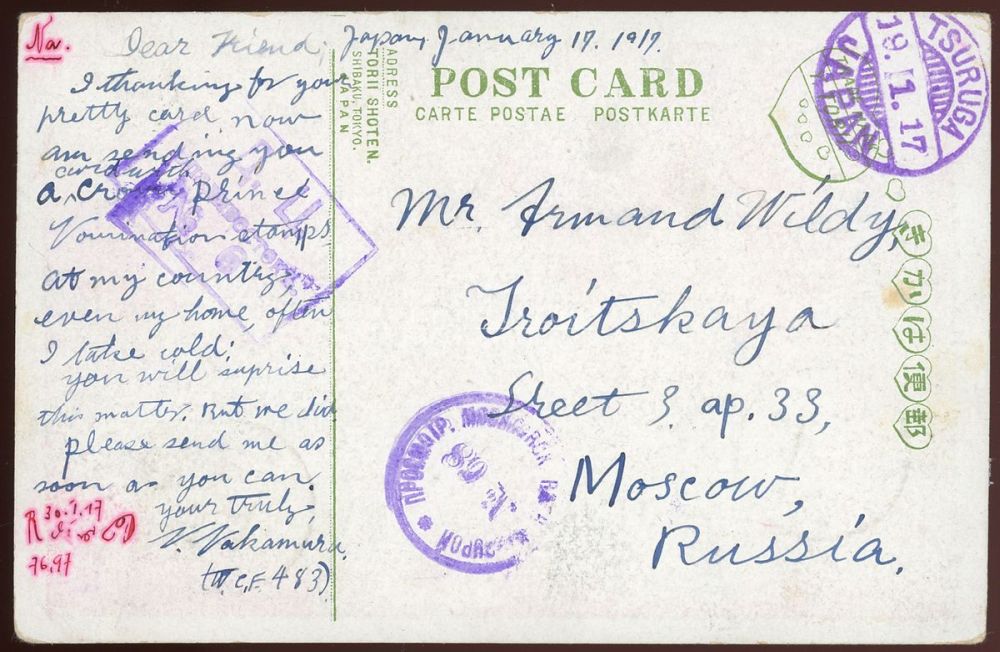 No.
Dear Friend, Japan, January 17. 1917.
I thanking for your
pretty card now
am sending you
card with
a Crown Prince
Nomination stamps
at my country
even my home often
I take cold;
you will suprise
this matter. But we did
please send me as
soon as you can.
your truly,
N. Nakamura,
(W.C.F. 483)
30.1.17
76,97
ADRESS
TORII SHOTEN.
SHIBAKU, TOKYO.
JAPAN
POST CARD
CARTE POSTAE POSTKARTE
TSURUGA
19.1.17
JAPAN
きかは便郵
Mr. Armand Wildy,
Troitskaya
Sreet 3. ap. 33,
Moscow,
Russia.
ПРОСМОТР. МОСКОВСК. ВОЕН.
68